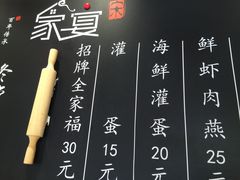 家宴
百年传承
招牌全家福30元
灌蛋15元
海鲜灌蛋20元
鲜虾肉燕25元